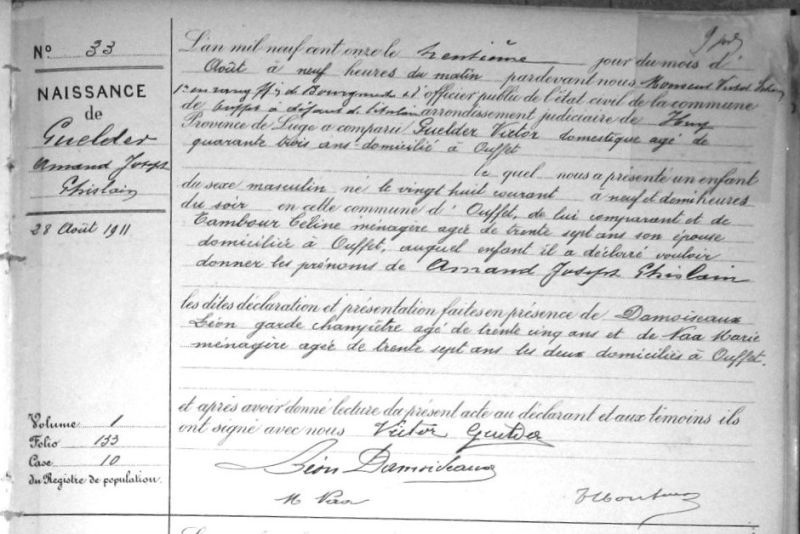 No 33
NAISSANCE
de
Guelder
Amand Joseph
Ghislain
28 Août 1911
Volume 1
Folio 133
Case 10
du Registre de population.
L'an mil neuf cent onze le trentième jour du mois d'
Août à neuf heures du matin pardevant nous Monsieur Victor
de Bourgmestre officier public de l'état civil de la commune
de Ouffet à défaut de titulaire arrondissement judiciaire de Huy
Province de Liege a comparu Guelder Victor domestique agé de
quarante trois ans domicilié à Ouffet
le quel nous a présenté un enfant
du sexe masculin né le vingt huit courant à neuf et demi heures
du soir en cette commune d'Ouffet, de lui comparant et de
Tambour Céline ménagère agée de trente sept ans son épouse
domiciliée à Ouffet, auquel enfant il a déclaré vouloir
donner les prénoms de Amand Joseph Ghislain
les dites déclaration et présentation faites en présence de Damoiseaux
Léon garde champêtre agé de trente cinq ans et de Naa Marie
ménagère agée de trente sept ans les deux domiciliés à Ouffet.
et après avoir donné lecture du présent acte au déclarant et aux témoins ils
ont signé avec nous Victor Guelder
Léon Damoiseaux
M Naa